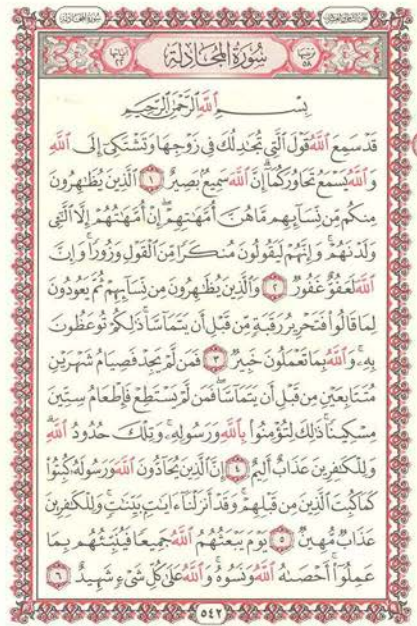 سُورَةُ المُجَادلَةِ
بِسْمِ اللَّهِ الرَّحْمَٰنِ الرَّحِيمِ
قَدْ سَمِعَ اللَّهُ قَوْلَ الَّتِي تُجَادِلُكَ فِي زَوْجِهَا وَتَشْتَكِي إِلَى اللَّهِ
وَاللَّهُ يَسْمَعُ تَحَاوُرَكُمَا إِنَّ اللَّهَ سَمِيعٌ بَصِيرٌ ١ الَّذِينَ يُظَاهِرُونَ
مِنكُم مِّن نِّسَائِهِم مَّا هُنَّ أُمَّهَاتِهِمْ إِنْ أُمَّهَاتُهُمْ إِلَّا الَّائِي
وَلَدْنَهُمْ وَإِنَّهُمْ لَيَقُولُونَ مُنكَرًا مِّنَ الْقَوْلِ وَزُورًا وَإِنَّ
اللَّهَ لَعَفُوٌّ غَفُورٌ ٢ وَالَّذِينَ يُظَاهِرُونَ مِن نِّسَائِهِمْ ثُمَّ يَعُودُونَ
لِمَا قَالُوا فَتَحْرِيرُ رَقَبَةٍ مِّن قَبْلِ أَن يَتَمَاسَّا ذَٰلِكُمْ تُوعَظُونَ
بِهِ وَاللَّهُ بِمَا تَعْمَلُونَ خَبِيرٌ ٣ فَمَن لَّمْ يَجِدْ فَصِيَامُ شَهْرَيْنِ
مُتَتَابِعَيْنِ مِن قَبْلِ أَن يَتَمَاسَّا فَمَن لَّمْ يَسْتَطِعْ فَإِطْعَامُ سِتِّينَ
مِسْكِينًا ذَٰلِكَ لِتُؤْمِنُوا بِاللَّهِ وَرَسُولِهِ وَتِلْكَ حُدُودُ اللَّهِ
وَلِلْكَافِرِينَ عَذَابٌ أَلِيمٌ ٤ إِنَّ الَّذِينَ يُحَادُّونَ اللَّهَ وَرَسُولَهُ كُبِتُوا
كَمَا كُبِتَ الَّذِينَ مِن قَبْلِهِمْ وَقَدْ أَنزَلْنَا آيَاتٍ بَيِّنَاتٍ وَلِلْكَافِرِينَ
عَذَابٌ مُّهِينٌ ٥ يَوْمَ يَبْعَثُهُمُ اللَّهُ جَمِيعًا فَيُنَبِّئُهُم بِمَا
عَمِلُوا أَحْصَاهُ اللَّهُ وَنَسُوهُ وَاللَّهُ عَلَىٰ كُلِّ شَيْءٍ شَهِيدٌ ٦
٥٤٢